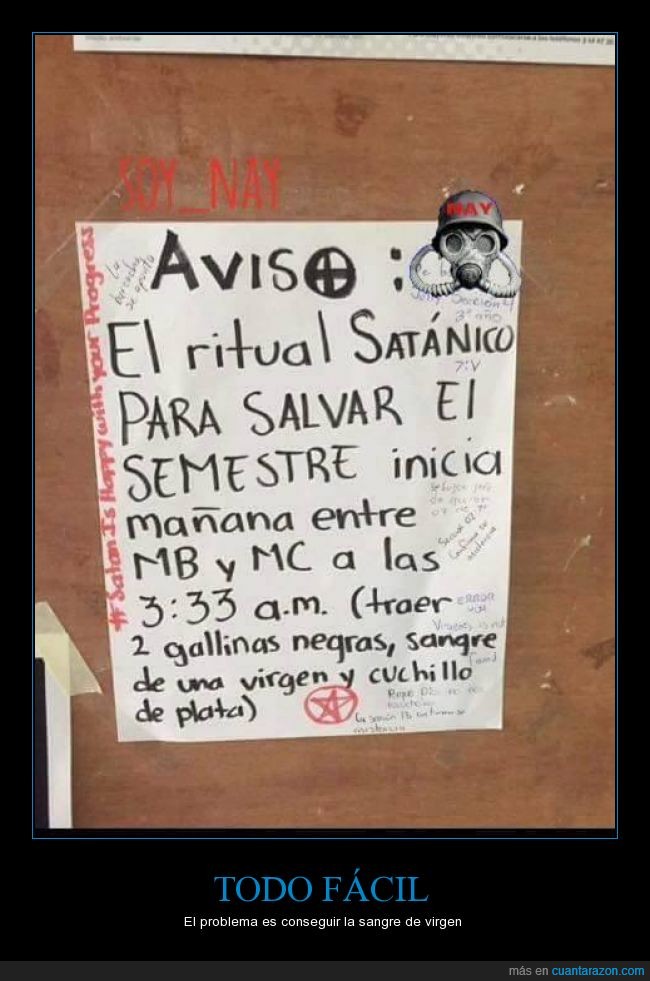 SOY_NAY
NAY
AVISO :
La
se apunta
Sección 4
3º año
El ritual SATÁNICO
7:V
PARA SALVAR El
SEMESTRE inicia
mañana entre
MB y MC a las
3:33 a.m. (traer
2 gallinas negras, sangre
de una virgen y cuchillo
de plata)
#Satan Is Happy with your Progress
Virgenes is not
found
TODO FÁCIL
El problema es conseguir la sangre de virgen
más en cuantarazon.com